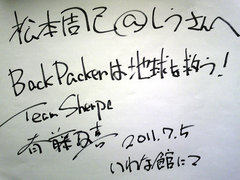 松本周己@しうさんへ
BackPackerは地球を救う!
Team Sherpa
斉藤
2011.7.5
いわな館にて